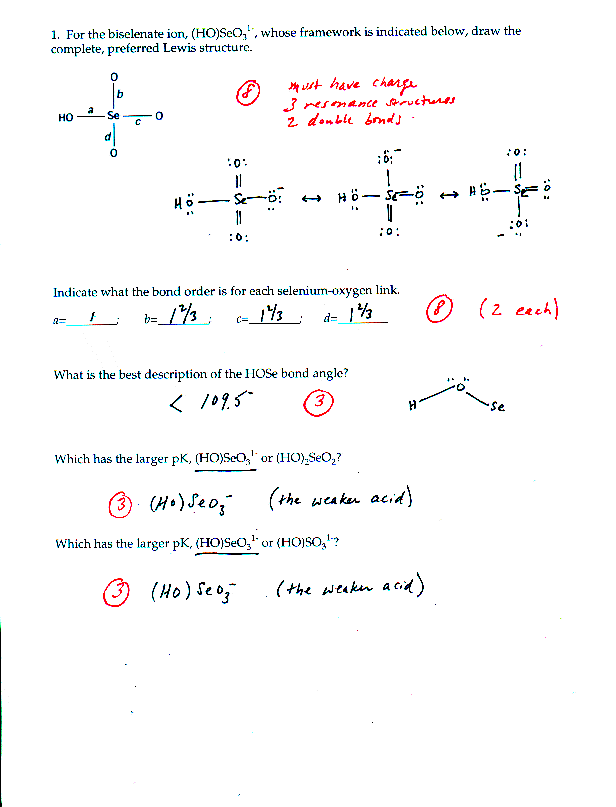 1. For the biselenate ion, (HO)SeO₃¹⁻, whose framework is indicated below, draw the
complete, preferred Lewis structure.
O
b
HO a Se c O
d
O
8 must have charge
3 resonance structures
2 double bonds
:O: :Ö:⁻ :O:
HÖ — Se — Ö:⁻ ↔ HÖ — Se = Ö ↔ HÖ — Se = Ö
:O: :O: :O: ⁻
Indicate what the bond order is for each selenium-oxygen link.
a= 1 ; b= 1 2/3 ; c= 1 2/3 ; d= 1 2/3 8 (2 each)
What is the best description of the HOSe bond angle?
< 109.5° 3 H O Se
Which has the larger pK, (HO)SeO₃¹⁻ or (HO)₂SeO₂?
3 (HO)SeO₃⁻ (the weaker acid)
Which has the larger pK, (HO)SeO₃¹⁻ or (HO)SO₃¹⁻?
3 (HO)SeO₃⁻ (the weaker acid)